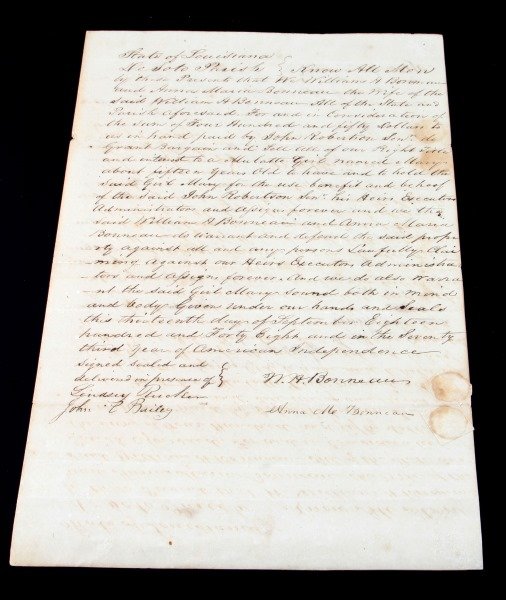 State of Louisiana
De Soto Parish } Know All Men
by these Presents that We William A Bonneau
and Anna Maria Bonneau the Wife of the
said William A Bonneau All of the State and
Parish aforesaid For and in Consideration of
the Sum of Five Hundred and fifty Dollars to
us in hand paid by John Robertson Senr do
Grant Bargain and Sell all of our Right
and interest to a Mulatto Girl named Mary
about fifteen Years Old to have and to hold the
said Girl Mary for the use benefit and behoof
of the said John Robertson Senr his Heirs Executors
Administrators and Assigns forever and we the
said William A Bonneau and Anna Maria
Bonneau do warrant and defend the said prope
rty against all and any persons Lawfully Clai
ming against our Heirs Executors Administra
tors and Assigns forever And we do also Warra
nt the said Girl Mary Sound both in Mind
and Body Given under our hands and Seals
this thirteenth day of September Eighteen
hundred and Forty Eight and in the Seventy
third Year of American Independence
Signed Sealed and
delivered in presence of } W. A. Bonneau
Lindsey
John C Bailey Anna M Bonneau